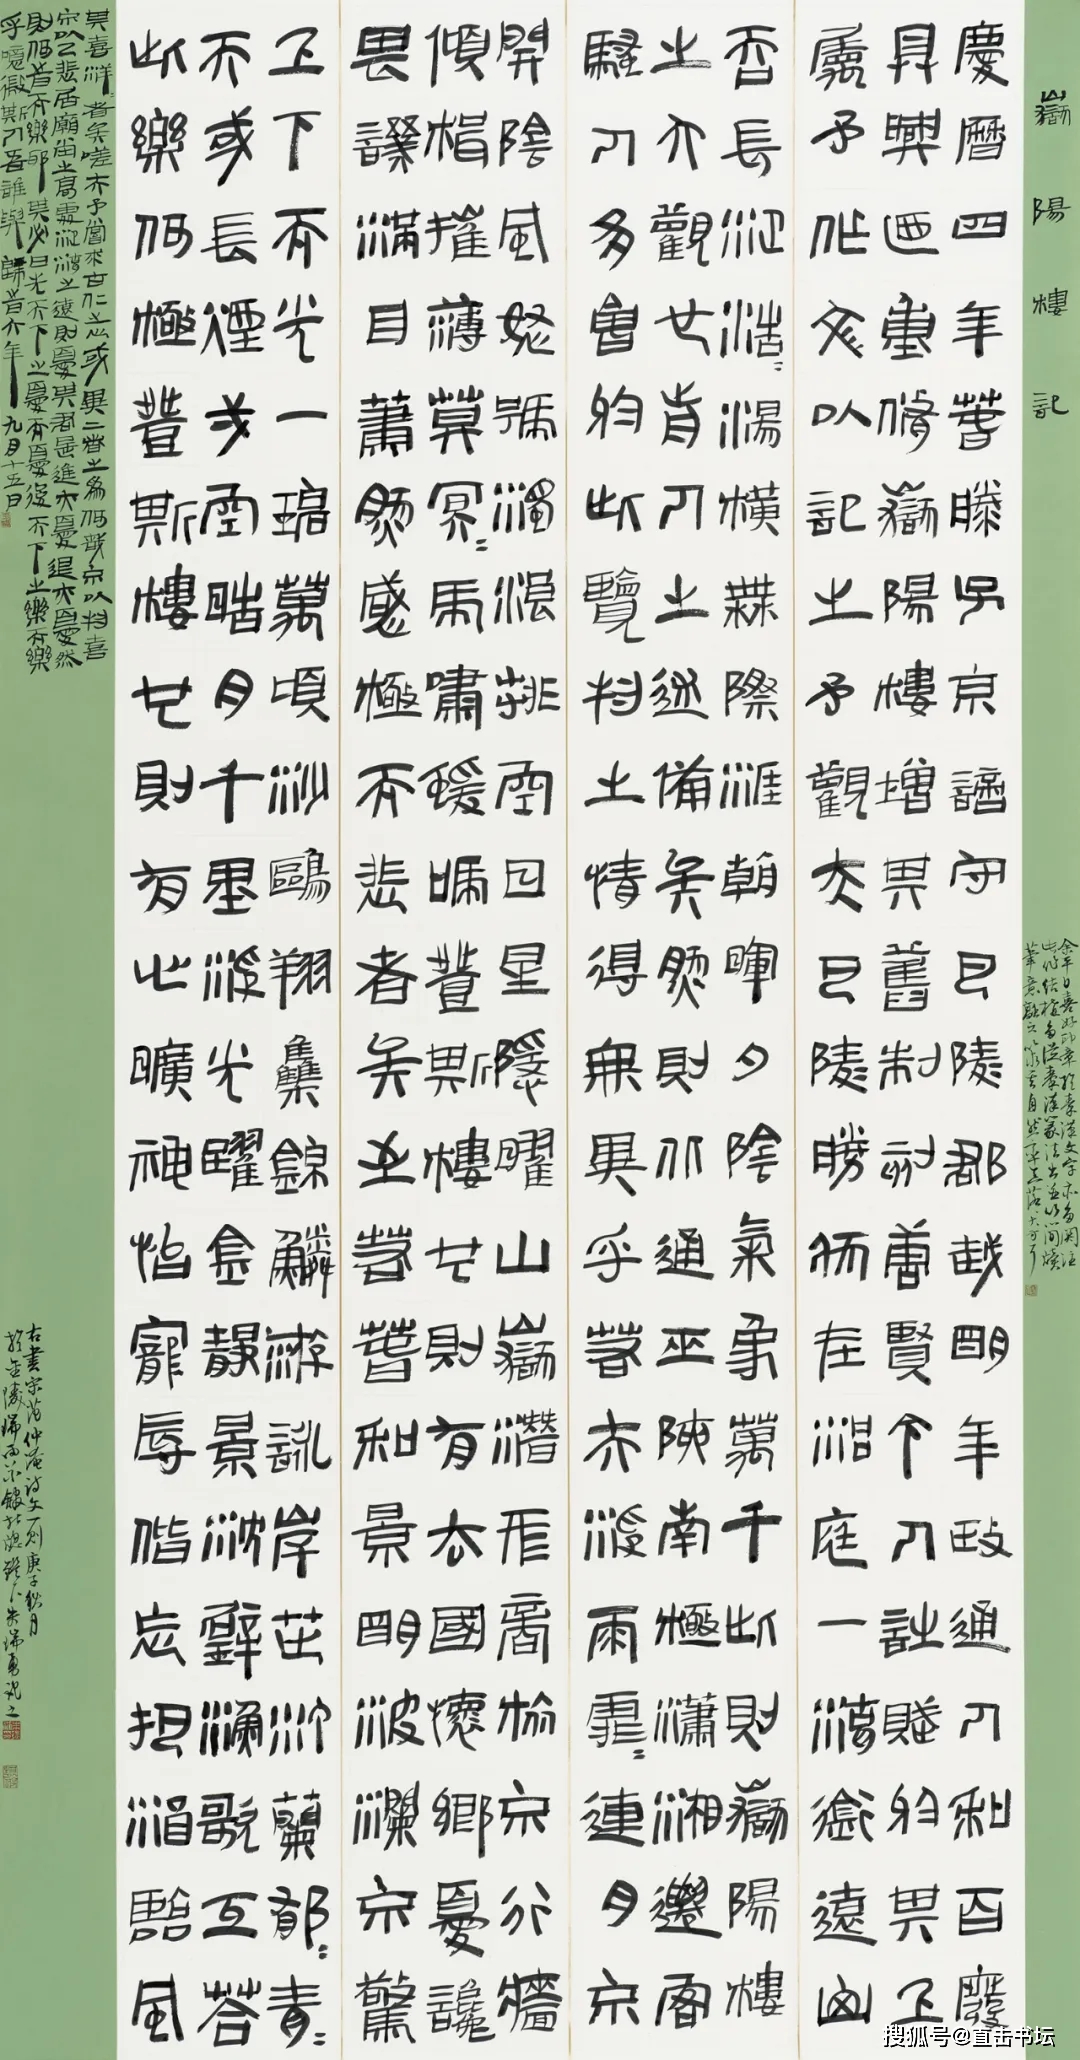 嶽陽樓記
慶曆四年春滕子京謫守巴陵郡越明年政通人和百廢
具興迺重脩嶽陽樓增其舊制刻唐賢今人詩賦於其上
屬予作文以記之予觀夫巴陵勝狀在洞庭一湖銜遠山
吞長江浩=湯橫無際涯朝暉夕陰氣象萬千此則嶽陽樓
之大觀也前人之述備矣然則北通巫陝南極瀟湘遷客
騷人多會於此覽物之情得無異乎若夫淫雨霏=連月不
開陰風怒號濁浪排空日星隱曜山嶽潛形商旅不行檣
傾楫摧薄莫冥=虎嘯猨啼登斯樓也則有去國懷鄉憂讒
畏譏滿目蕭然感極而悲者矣至若春和景明波瀾不驚
上下天光一碧萬頃沙鷗翔集錦鱗游泳岸芷汀蘭郁=青=
而或長煙一空皓月千里浮光躍金靜影沈璧漁歌互答
此樂何極登斯樓也則有心曠神怡寵辱偕忘把酒臨風
其喜洋=者矣嗟夫予嘗求古仁之心或異二者之爲何哉不以物喜
不以己悲居廟堂之高處江湖之遠則憂其君是進亦憂退亦憂然
則何時而樂耶其必曰先天下之憂而憂後天下之樂而樂
乎噫微斯人吾誰與歸時六年九月十五日
余平日喜好印章於秦漢文字亦多關注
此作結構多從秦漢篆法出並以簡牘
筆意
右書宋范仲淹詩文一則庚子秋月
於金陵
搜狐号@直击书坛